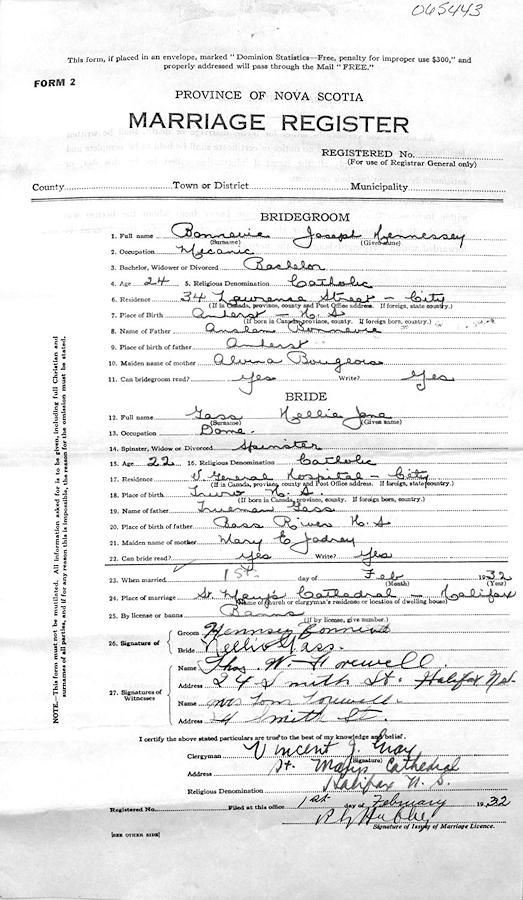 065443
This form, if placed in an envelope, marked "Dominion Statistics—Free, penalty for improper use $300," and
properly addressed will pass through the Mail "FREE."
FORM 2
PROVINCE OF NOVA SCOTIA
MARRIAGE REGISTER
REGISTERED No.
(For use of Registrar General only)
County Town or District Municipality
BRIDEGROOM
1. Full name Bonnevie Joseph Hennessey
(Surname) (Given name)
2. Occupation Mecanic
3. Bachelor, Widower or Divorced Bachelor
4. Age 24 5. Religious Denomination Catholic
6. Residence 34 Lawrence Street - City
(If in Canada, province, county and Post Office address. If foreign, state country.)
7. Place of Birth Amherst - N. S.
(If born in Canada, province, county. If foreign born, country.)
8. Name of Father Anslem Bonnevie
9. Place of birth of father Amherst
10. Maiden name of mother Alvina Bourgeois
11. Can bridegroom read? Yes Write? Yes
BRIDE
12. Full name Gass Nellie Jane
(Surname) (Given name)
13. Occupation Dome.
14. Spinster, Widow or Divorced Spinster
15. Age 22 16. Religious Denomination Catholic
17. Residence V. General Hospital - City
(If in Canada, province, county and Post Office address. If foreign, state country.)
18. Place of birth Truro N. S.
(If born in Canada, province, county. If foreign born, country.)
19. Name of father Trueman Gass
20. Place of birth of father Bass River N. S
21. Maiden name of mother Mary E
22. Can bride read? Yes Write? Yes
23. When married 1st. day of Feb 1932
(Month) (Year)
24. Place of marriage St. Mary's Cathedral - Halifax
(Name of church or clergyman's residence or location of dwelling house)
25. By license or banns Banns
(If by license, give number.)
26. Signature of Groom
Bride Nellie Gass.
27. Signatures of Witnesses
Name Thos. W.
Address 24 Smith St. Halifax N.S.
Name Mrs Tom
Address 24 Smith St.
I certify the above stated particulars are true to the best of my knowledge and belief.
Clergyman Vincent J. Gray
(Signature)
Address St. Marys Cathedral
Halifax N. S.
Religious Denomination
Registered No. Filed at this office 1st day of February 1932
Signature of Issuer of Marriage Licence.
[SEE OTHER SIDE]
NOTE—This form must not be mutilated. All information asked for is to be given, including full Christian and
surnames of all parties, and if for any reason this is impossible, the reason for the omission must be stated.